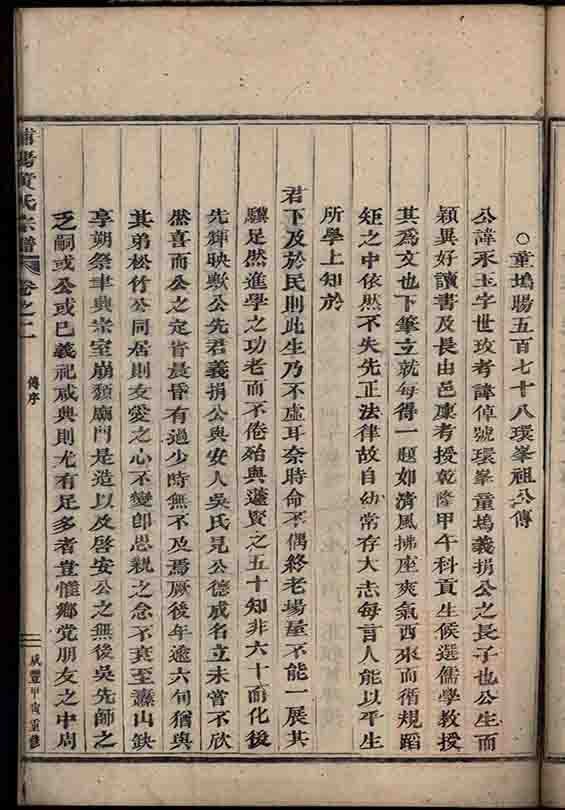 ○童塢勝五百七十八環峯祖公傳
公諱永玉字世玫考諱倬號環峯童塢義捐公之長子也公生而
穎異好讀書及長由邑庠考授乾隆甲午科貢生候選儒學教授
其爲文也下筆立就每得一題如清風拂座爽氣西來而循規蹈
矩之中依然不失先正法律故自幼常存大志每言人能以平生
所學上知於
君下及於民則此生乃不虛耳奈時命不偶終老場屋不能一展其
驥足然進學之功老而不倦殆與蘧賢之五十知非六十而化後
先輝映歟公先君義捐公與安人吳氏見公德成名立未嘗不欣
然喜而公之定省晨昏有過少時無不及焉厥後年逾六旬猶與
其弟松竹公同居則友愛之心不變卽思親之念不衰至薦山缺
享朔祭聿興宗室崩頹廟門是造以及啓安公之無後吳先師之
乏嗣或公或巳義祀咸興則尤有足多者豈惟鄉黨朋友之中周
浦陽黃氏宗譜
卷之二
傳序
咸豐甲寅重修